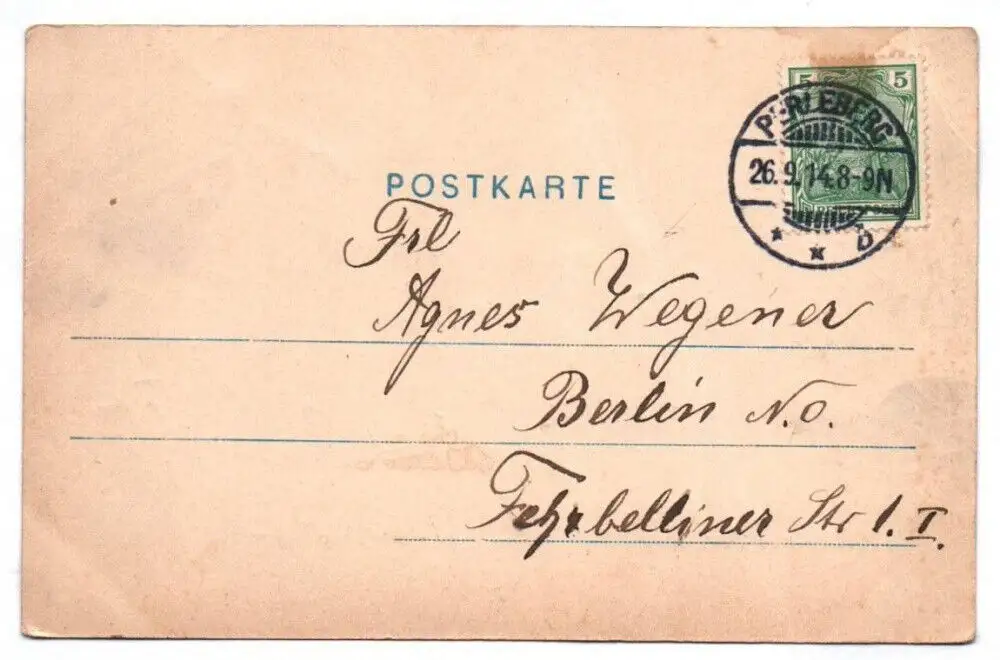 5 5
PERLEBERG
26.9.14.8-9N
* * b
POSTKARTE
Frl
Agnes Wegener
Berlin N.O.
Fehrbelliner Str 1. I.